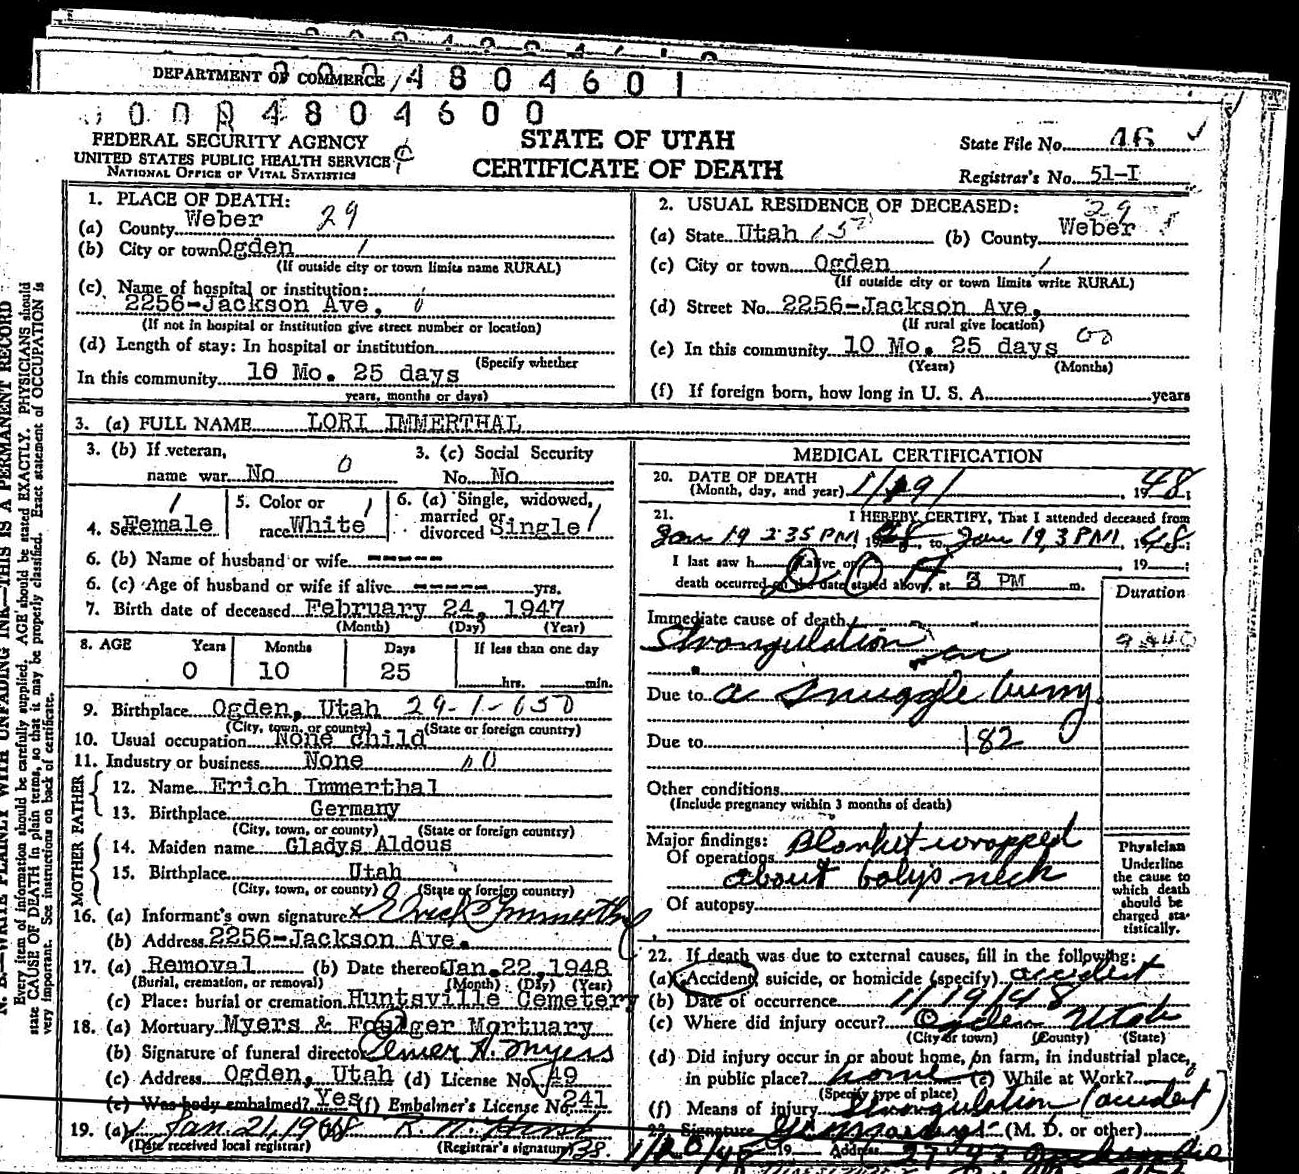 DEPARTMENT OF COMMERCE
0004804601
0004804600
FEDERAL SECURITY AGENCY
UNITED STATES PUBLIC HEALTH SERVICE
NATIONAL OFFICE OF VITAL STATISTICS
STATE OF UTAH
CERTIFICATE OF DEATH
State File No. 46
Registrar's No. 51-I
1. PLACE OF DEATH:
(a) County Weber 29
(b) City or town Ogden 1
(If outside city or town limits name RURAL)
(c) Name of hospital or institution:
2256-Jackson Ave. 0
(If not in hospital or institution give street number or location)
(d) Length of stay: In hospital or institution
(Specify whether
In this community 10 Mo. 25 days
years, months or days)
2. USUAL RESIDENCE OF DECEASED: 29
(a) State Utah (b) County Weber
(c) City or town Ogden 1
(If outside city or town limits write RURAL)
(d) Street No. 2256-Jackson Ave.
(If rural give location)
(e) In this community 10 Mo. 25 days 00
(Years) (Months)
(f) If foreign born, how long in U. S. A. years
3. (a) FULL NAME LORI IMMERTHAL
3. (b) If veteran,
name war No 0
3. (c) Social Security
No. No
4. Sex Female 1
5. Color or
race White 1
6. (a) Single, widowed,
married or
divorced Single 1
6. (b) Name of husband or wife -----
6. (c) Age of husband or wife if alive ----- yrs.
7. Birth date of deceased February 24, 1947
(Month) (Day) (Year)
8. AGE Years Months Days If less than one day
0 10 25 hrs. min.
9. Birthplace Ogden, Utah 29-1-650
(City, town, or county) (State or foreign country)
10. Usual occupation None child
11. Industry or business None
FATHER
12. Name Erich Immerthal
13. Birthplace Germany
(City, town, or county) (State or foreign country)
MOTHER
14. Maiden name Gladys Aldous
15. Birthplace Utah
(City, town, or county) (State or foreign country)
16. (a) Informant's own signature x Erick Immerthal
(b) Address 2256-Jackson Ave.
17. (a) Removal (b) Date thereof Jan. 22, 1948
(Burial, cremation, or removal) (Month) (Day) (Year)
(c) Place: burial or cremation Huntsville Cemetery
18. (a) Mortuary Myers & Foulger Mortuary
(b) Signature of funeral director Elmer H. Myers
(c) Address Ogden, Utah (d) License No. 49
(e) Was body embalmed? Yes (f) Embalmer's License No. 241
19. (a) Jan. 21, 1948
(Date received local registrar) (Registrar's signature)
MEDICAL CERTIFICATION
20. DATE OF DEATH
(Month, day, and year) 1/19/ 1948
21. I HEREBY CERTIFY, That I attended deceased from
Jan 19 2:35 PM, 1948, to Jan 19, 3 PM, 1948
I last saw h (alive on 19
death occurred on the date stated above, at 3 PM m.
Duration
Immediate cause of death
Strangulation
Due to a snuggle bunny
Due to 182
Other conditions
(Include pregnancy within 3 months of death)
Major findings: Blanket wrapped
Of operations about baby's neck
Of autopsy
Physician
Underline
the cause to
which death
should be
charged sta-
tistically.
22. If death was due to external causes, fill in the following:
(a) Accident, suicide, or homicide (specify) accident
(b) Date of occurrence 1/19/48
(c) Where did injury occur? Ogden Utah
(City or town) (County) (State)
(d) Did injury occur in or about home, on farm, in industrial place,
in public place? home (e) While at Work?
(Specify type of place)
(f) Means of injury Strangulation (accident)
23. Signature (M. D. or other)
Address
N. B.—WRITE PLAINLY WITH UNFADING INK—THIS IS A PERMANENT RECORD
Every item of information should be carefully supplied. AGE should be stated EXACTLY. PHYSICIANS should
state CAUSE OF DEATH in plain terms, so that it may be properly classified. Exact statement of OCCUPATION is
very important. See instructions on back of certificate.